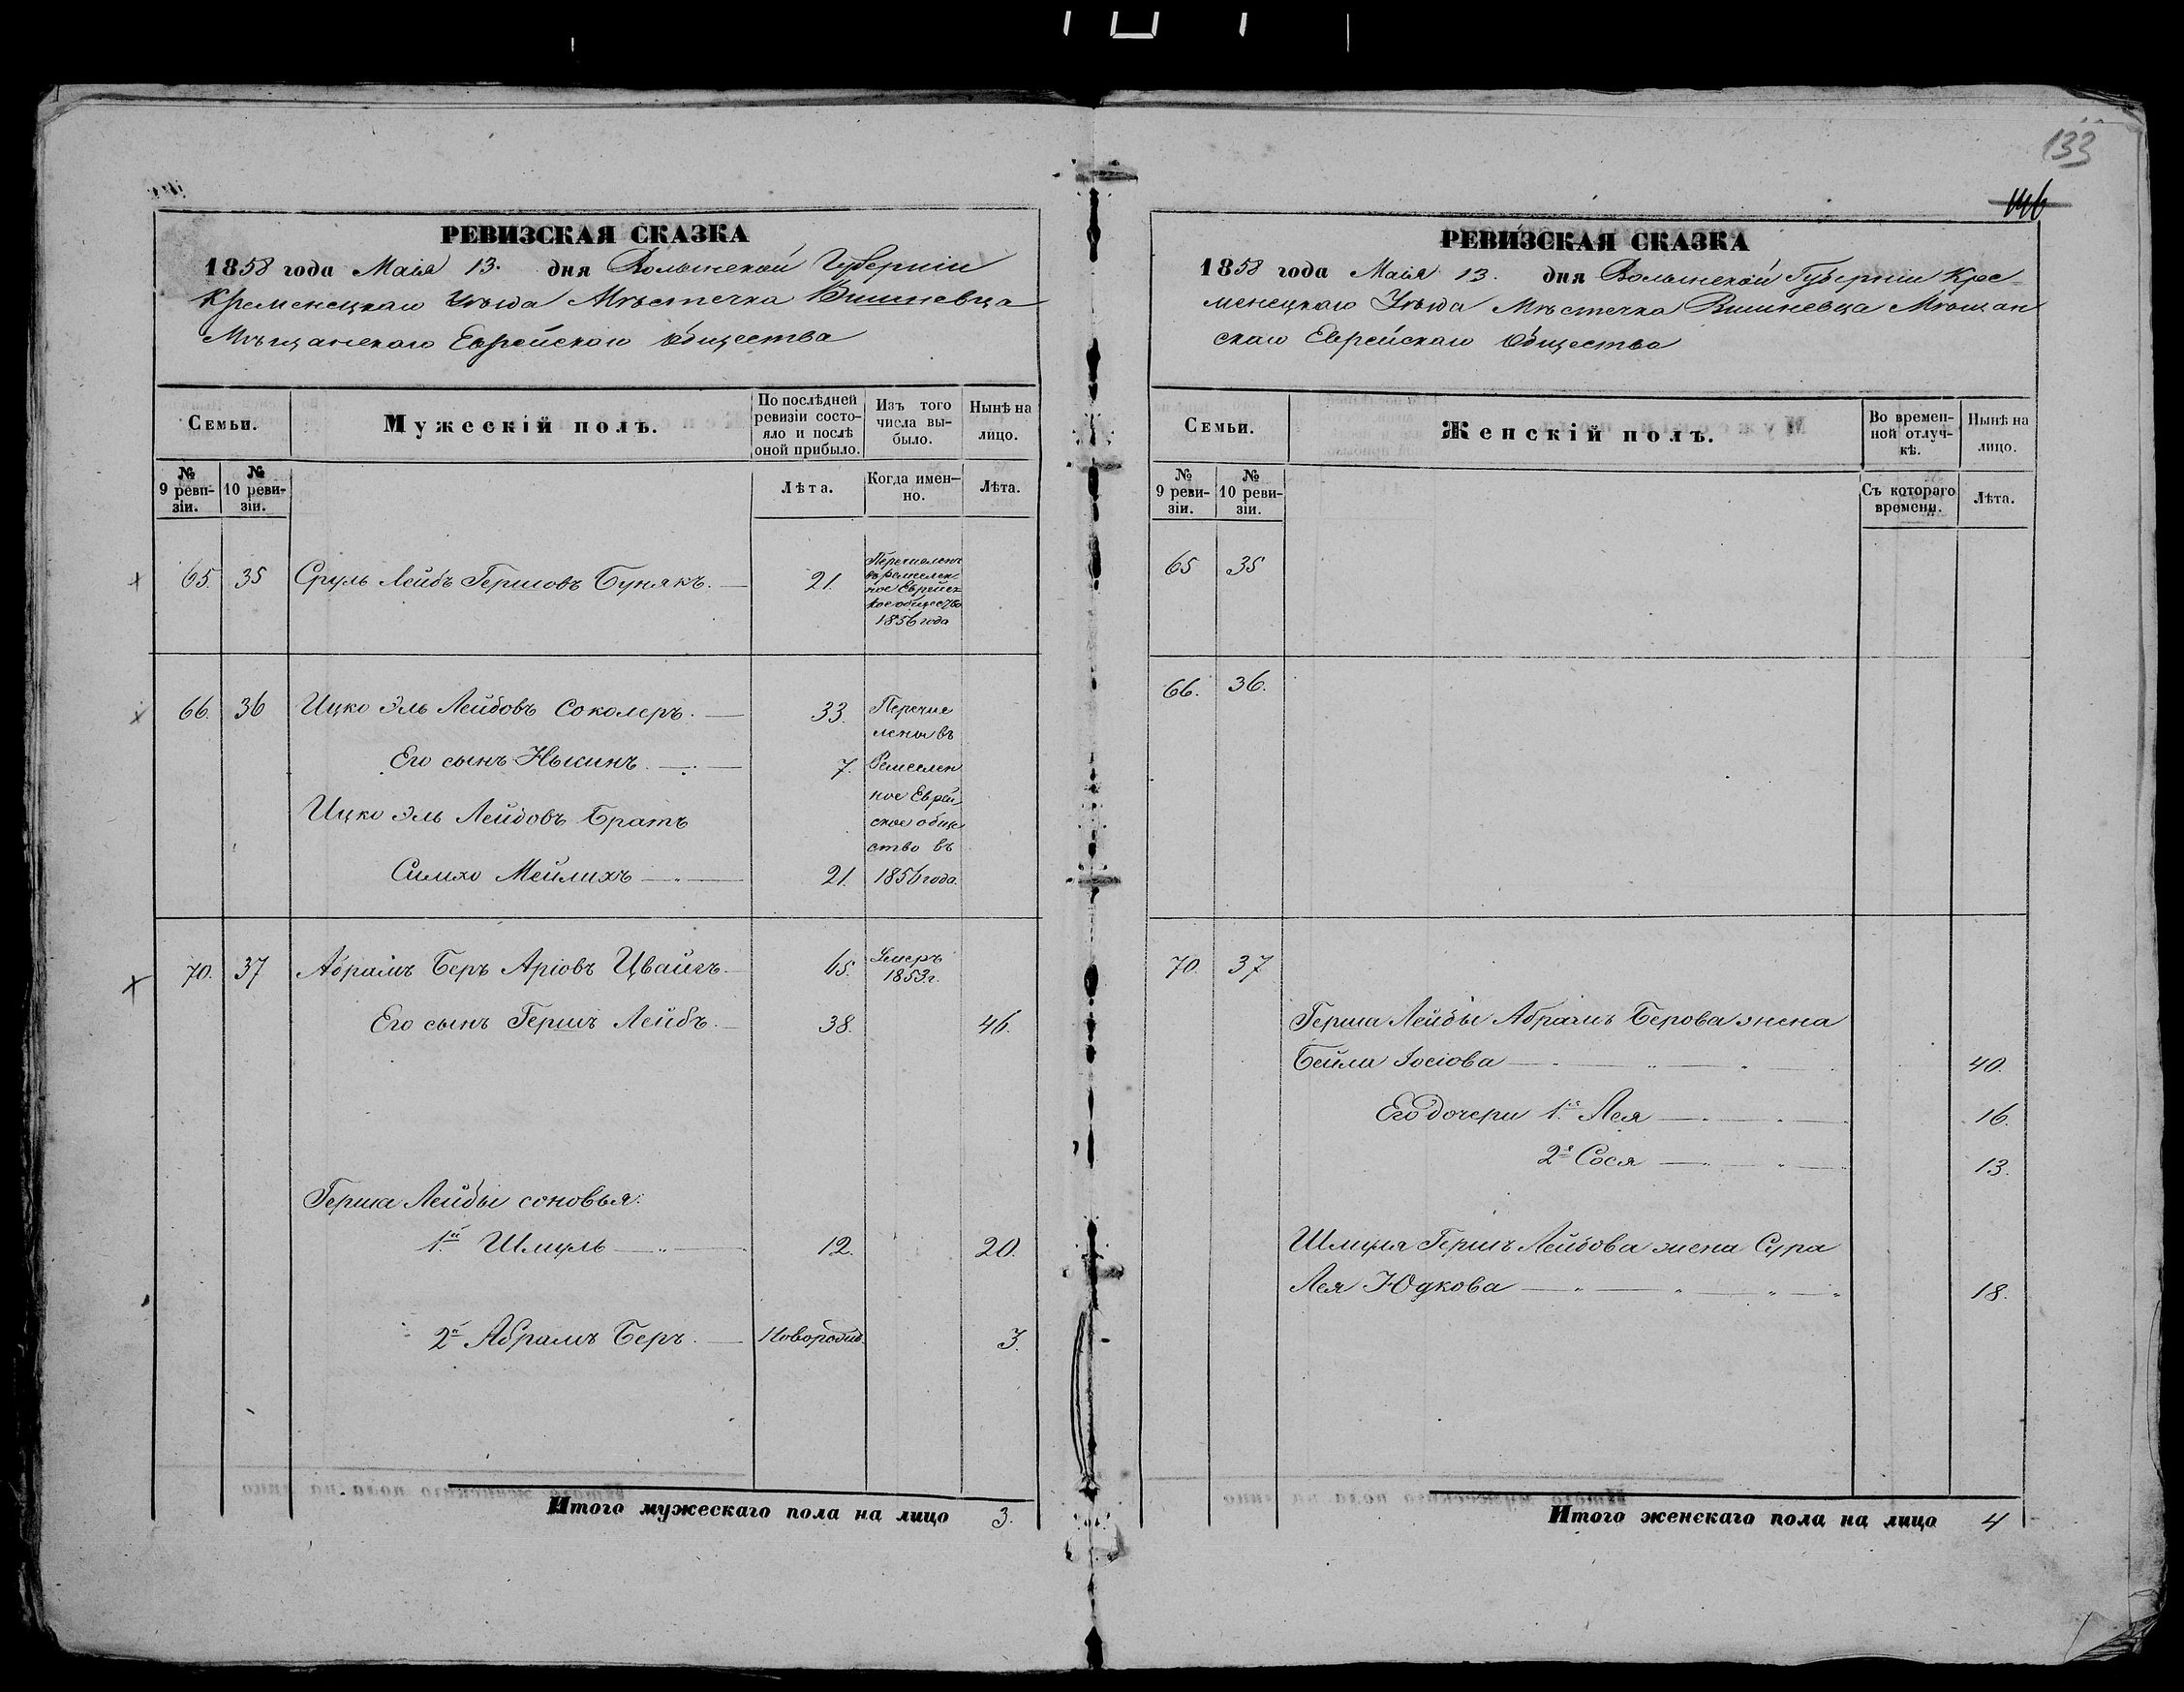 133
146
РЕВИЗСКАЯ СКАЗКА
1858 года Маія 13. дня Волынской Губерніи
Кременецкаго Уѣзда Мѣстечка Вишневца
Мѣщанскаго Еврейскаго общества
Семьи.
Мужескій полъ.
По послѣдней ревизіи состояло и послѣ оной прибыло.
Изъ того числа выбыло.
Нынѣ на лицо.
№ 9 ревизіи.
№ 10 ревизіи.
Лѣта.
Когда именно.
Лѣта.
65. 35 Сруль Лейбъ Гершовъ Бунякъ. 21.
Перечисленъ
въ ремеслен
ное Еврейск
ое общество
1856 года
66. 36 Ицко Эль Лейбовъ Соколеръ. 33. Перечис
лены въ
Его сынъ Нысинъ. 7. Ремеслен
ное Еврей
Ицко Эль Лейбовъ Братъ
ское обще
ство въ
Симхо Мейлихъ 21. 1856 года.
70. 37 Абрамъ Беръ Аріовъ Цвайгъ. 65. Умеръ
1853 г.
Его сынъ Гершъ Лейбъ. 38. 46.
Герша Лейбы соновья:
1й Шмуль 12. 20.
2й Абрамъ Беръ. Новорожд. 3.
Итого мужескаго пола на лицо 3.
РЕВИЗСКАЯ СКАЗКА
1858 года Маія 13. дня Волынской Губерніи Кре-
менецкаго Уѣзда Мѣстечка Вишневца Мѣщан
скаго Еврейскаго Общества
Семьи.
Женскій полъ.
Во временной отлучкѣ.
Нынѣ на лицо.
№ 9 ревизіи.
№ 10 ревизіи.
Съ котораго времени.
Лѣта.
65 35
66. 36.
70. 37
Герша Лейбы Абрамъ Берова жена
Бейла Іосіова 40.
Его дочери 1я Лея 16.
2я Сося 13.
Шмуля Гершъ Лейбова жена Сура
Лея Юдкова 18.
Итого женскаго пола на лицо 4